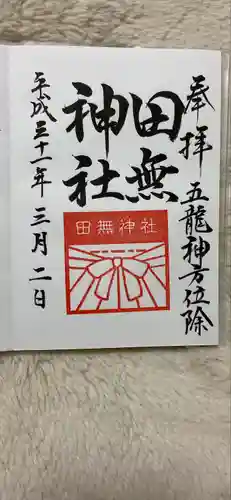 奉拝
五龍神方位除
田無
神社
田無神社
平成三十一年 三月 二日